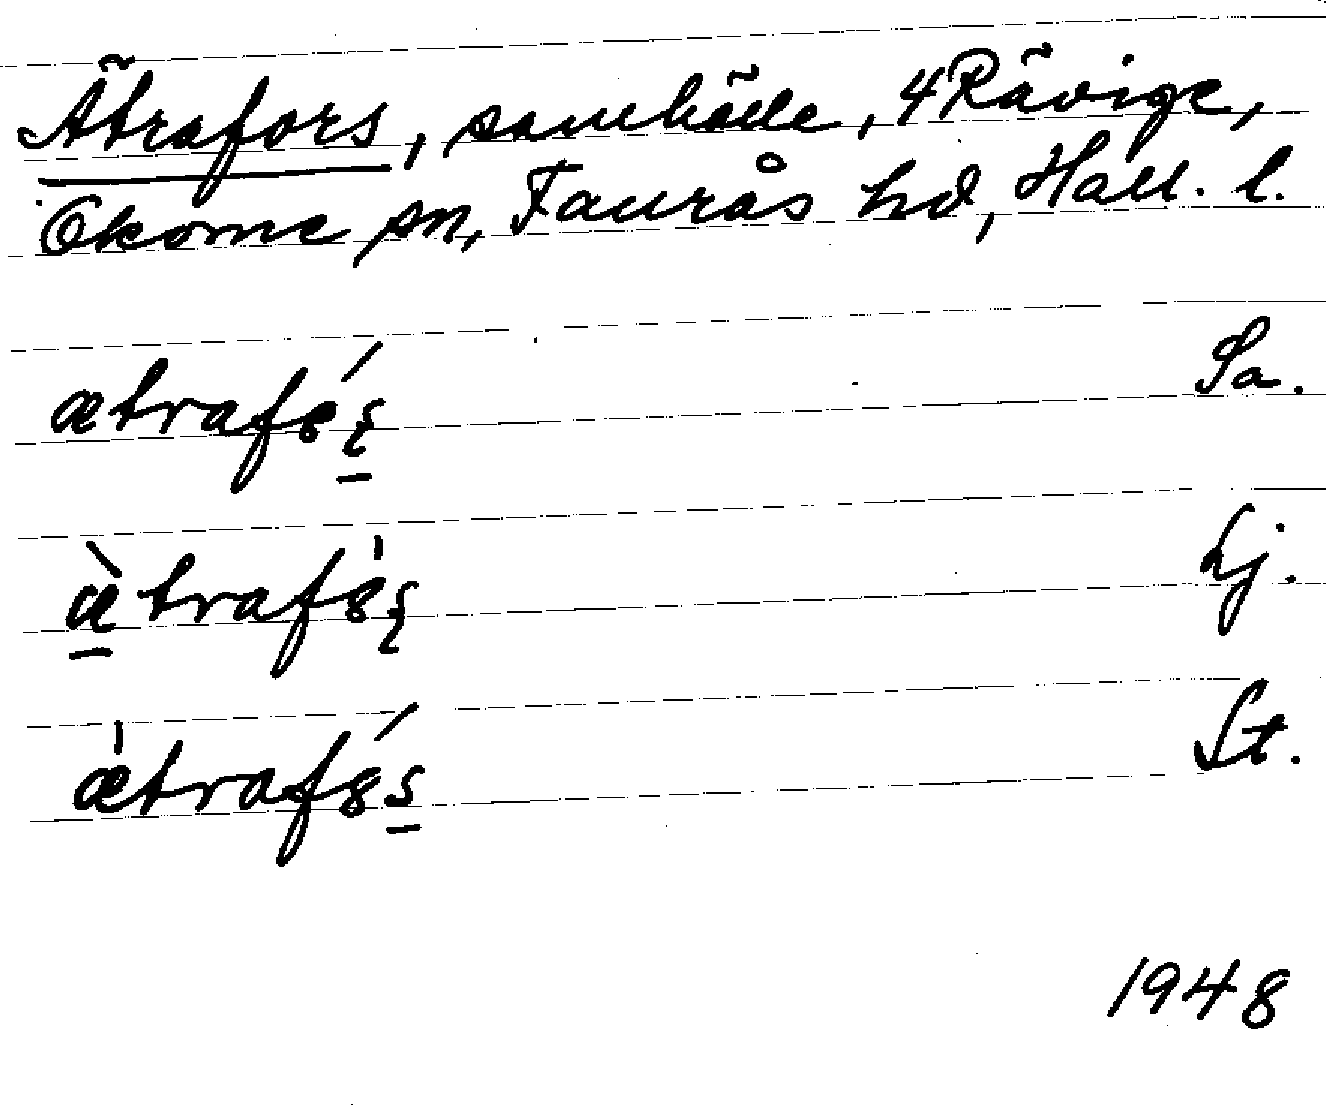 Ätrafors, samhälle, 4 Rävige,
Okome sn, Faurås hd, Hall. l.
ætrafǵş Sa.
æ̀trafȣş Lj.
ætrafȣ́s St.
1948